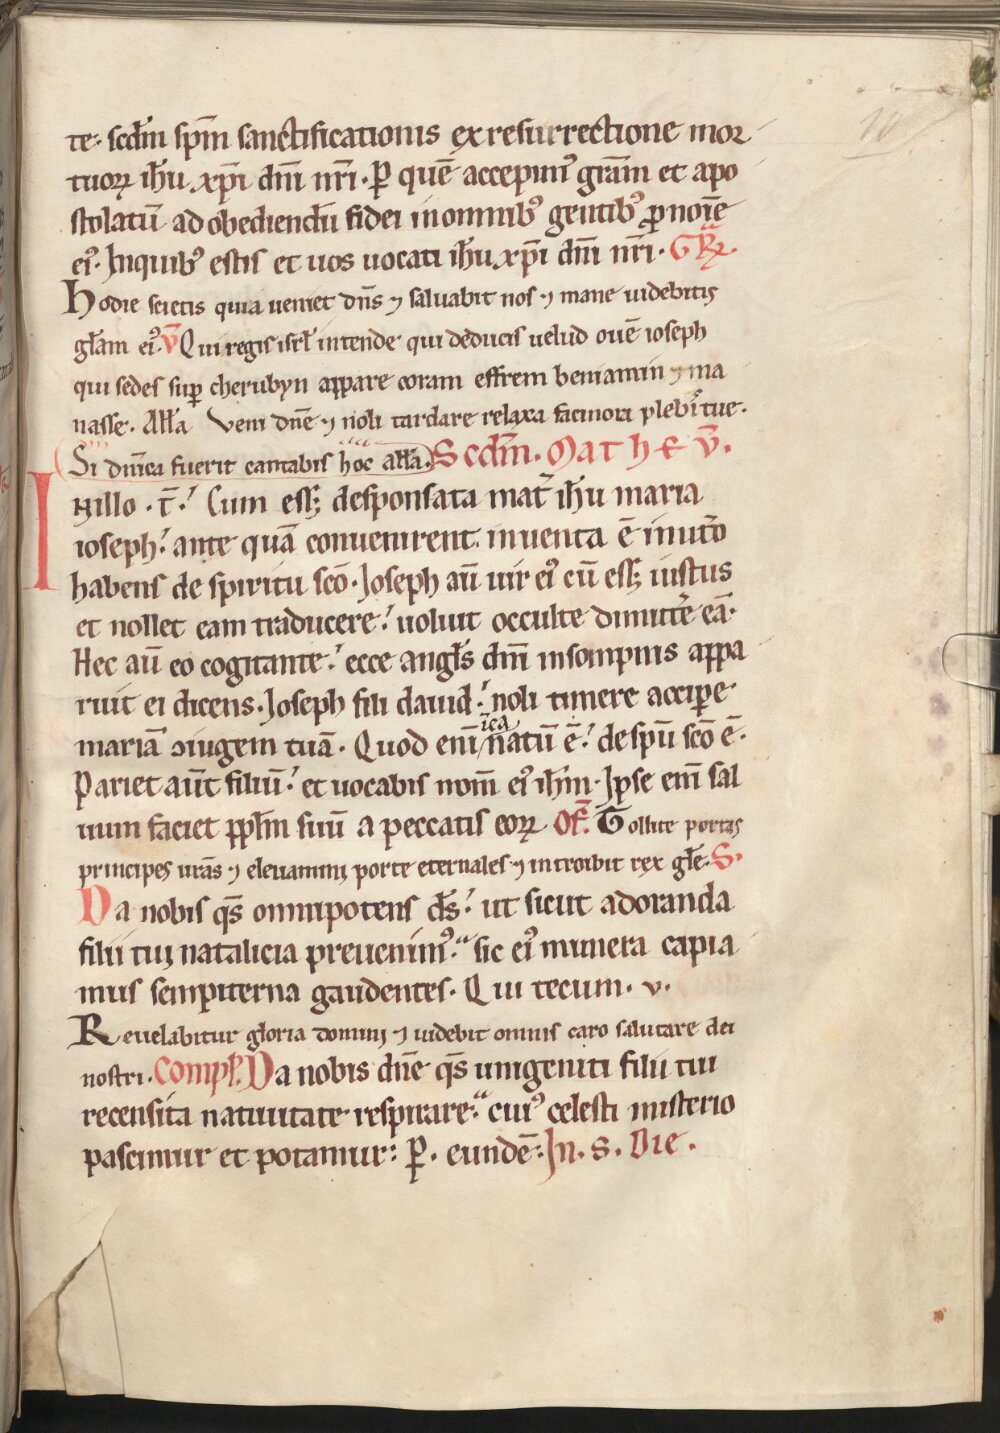 te· scdm̄ spm̄ sanctificationis ex resurrectione mor
tuoꝝ ih̄u xp̄i dn̄i nr̄i· ꝑ quē accepimꝰ gr̄am et apo
stolatū ad obediendū fidei in omnibꝰ gentibꝰ ꝓ noīe
eiꝰ· In quibꝰ estis et uos uocati ih̄u xp̄i dn̄i nr̄i· GR̄
Hodie scietis quia ueniet dn̄s ⁊ saluabit nos ⁊ mane uidebitis
gl̄am eiꝰ· V̄ Qui regis isrl̄ intende qui deducis uelud ouē ioseph
qui sedes suꝑ cherubyn appare coram effrem beniamin ⁊ ma
nasse· All̄a Veni dn̄e ⁊ noli tardare relaxa facinora plebi tue·
Si dn̄ica fuerit cantabis hoc all̄a· Scdm̄· Mathev̄·
In illo· t̄· Cum esſꝫ desponsata mat̄ ih̄u maria
ioseph· ante quā conuenirent inuenta ē in utō
habens de spiritu scō· Joseph aū uir eiꝰ cū esſꝫ iustus
et nollet eam traducere· uoluit occulte dimittē eā·
Hec aū eo cogitante· ecce angl̄s dn̄i in sompnis appa
ruit ei dicens· Joseph fili dauid· noli timere acciꝑe
mariā ↄiugem tuā· Quod enī in ea natū ē· de spū scō ē·
Pariet aūt filiū· et uocabis nom̄ eiꝰ ih̄m· Ipse enī sal
uum faciet ppl̄m suū a peccatis eoꝝ Of̄· Tollite portas
principes ur̄as ⁊ eleuamini porte eternales ⁊ introibit rex gl̄e· S·
Da nobis qs̄ omnipotens ds̄· ut sicut adoranda
filii tui natalicia preuenimꝰ· sic eiꝰ munera capia
mus sempiterna gaudentes· Qui tecum· v·
Reuelabitur gloria domini ⁊ uidebit omnis caro salutare dei
nostri· Compl̄· Da nobis dn̄e qs̄ unigeniti filii tui
recensita natiuitate respirare· cuiꝰ celesti misterio
pascimur et potamur· ꝑ· eundē· In· S· Die·
10